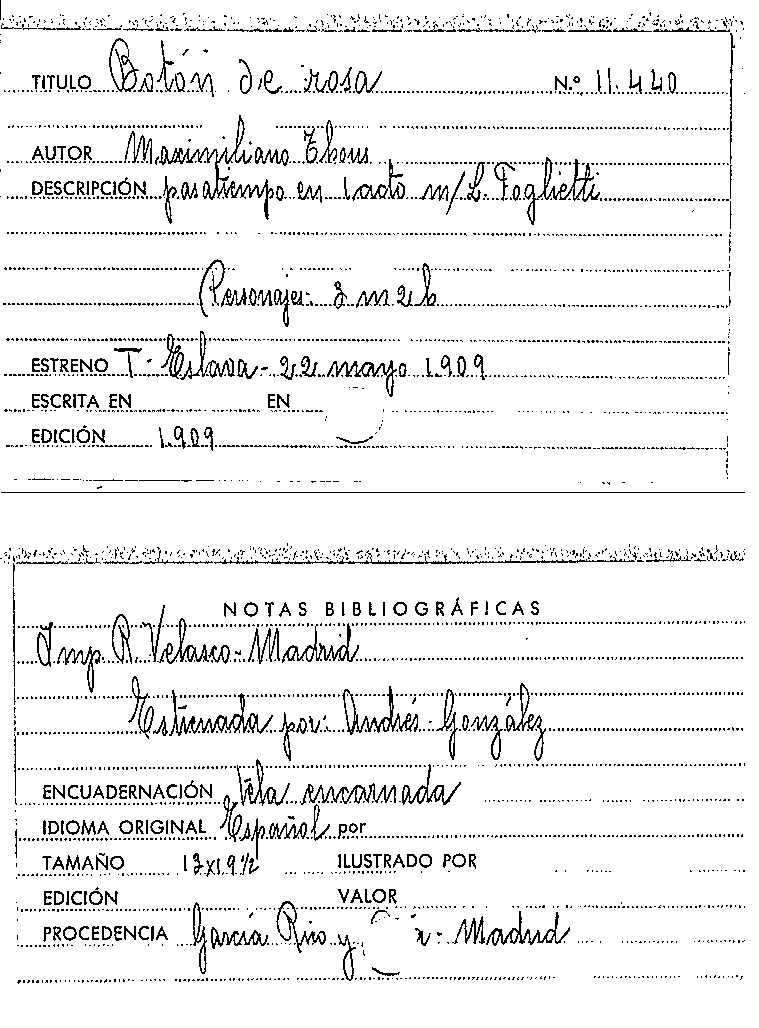 TITULO Botón de rosa N.º 11.440
AUTOR Maximiliano Thous
DESCRIPCIÓN pasatiempo en 1 acto m/ L. Foglietti
Personajes: 3 m 2 h
ESTRENO T. Eslava - 22 mayo 1.909
ESCRITA EN EN
EDICIÓN 1.909
NOTAS BIBLIOGRÁFICAS
Imp. R. Velasco - Madrid
Estrenada por: Andrés - González
ENCUADERNACIÓN tela encarnada
IDIOMA ORIGINAL Español por
TAMAÑO 13x19½ ILUSTRADO POR
EDICIÓN VALOR
PROCEDENCIA García Rico y - Madrid